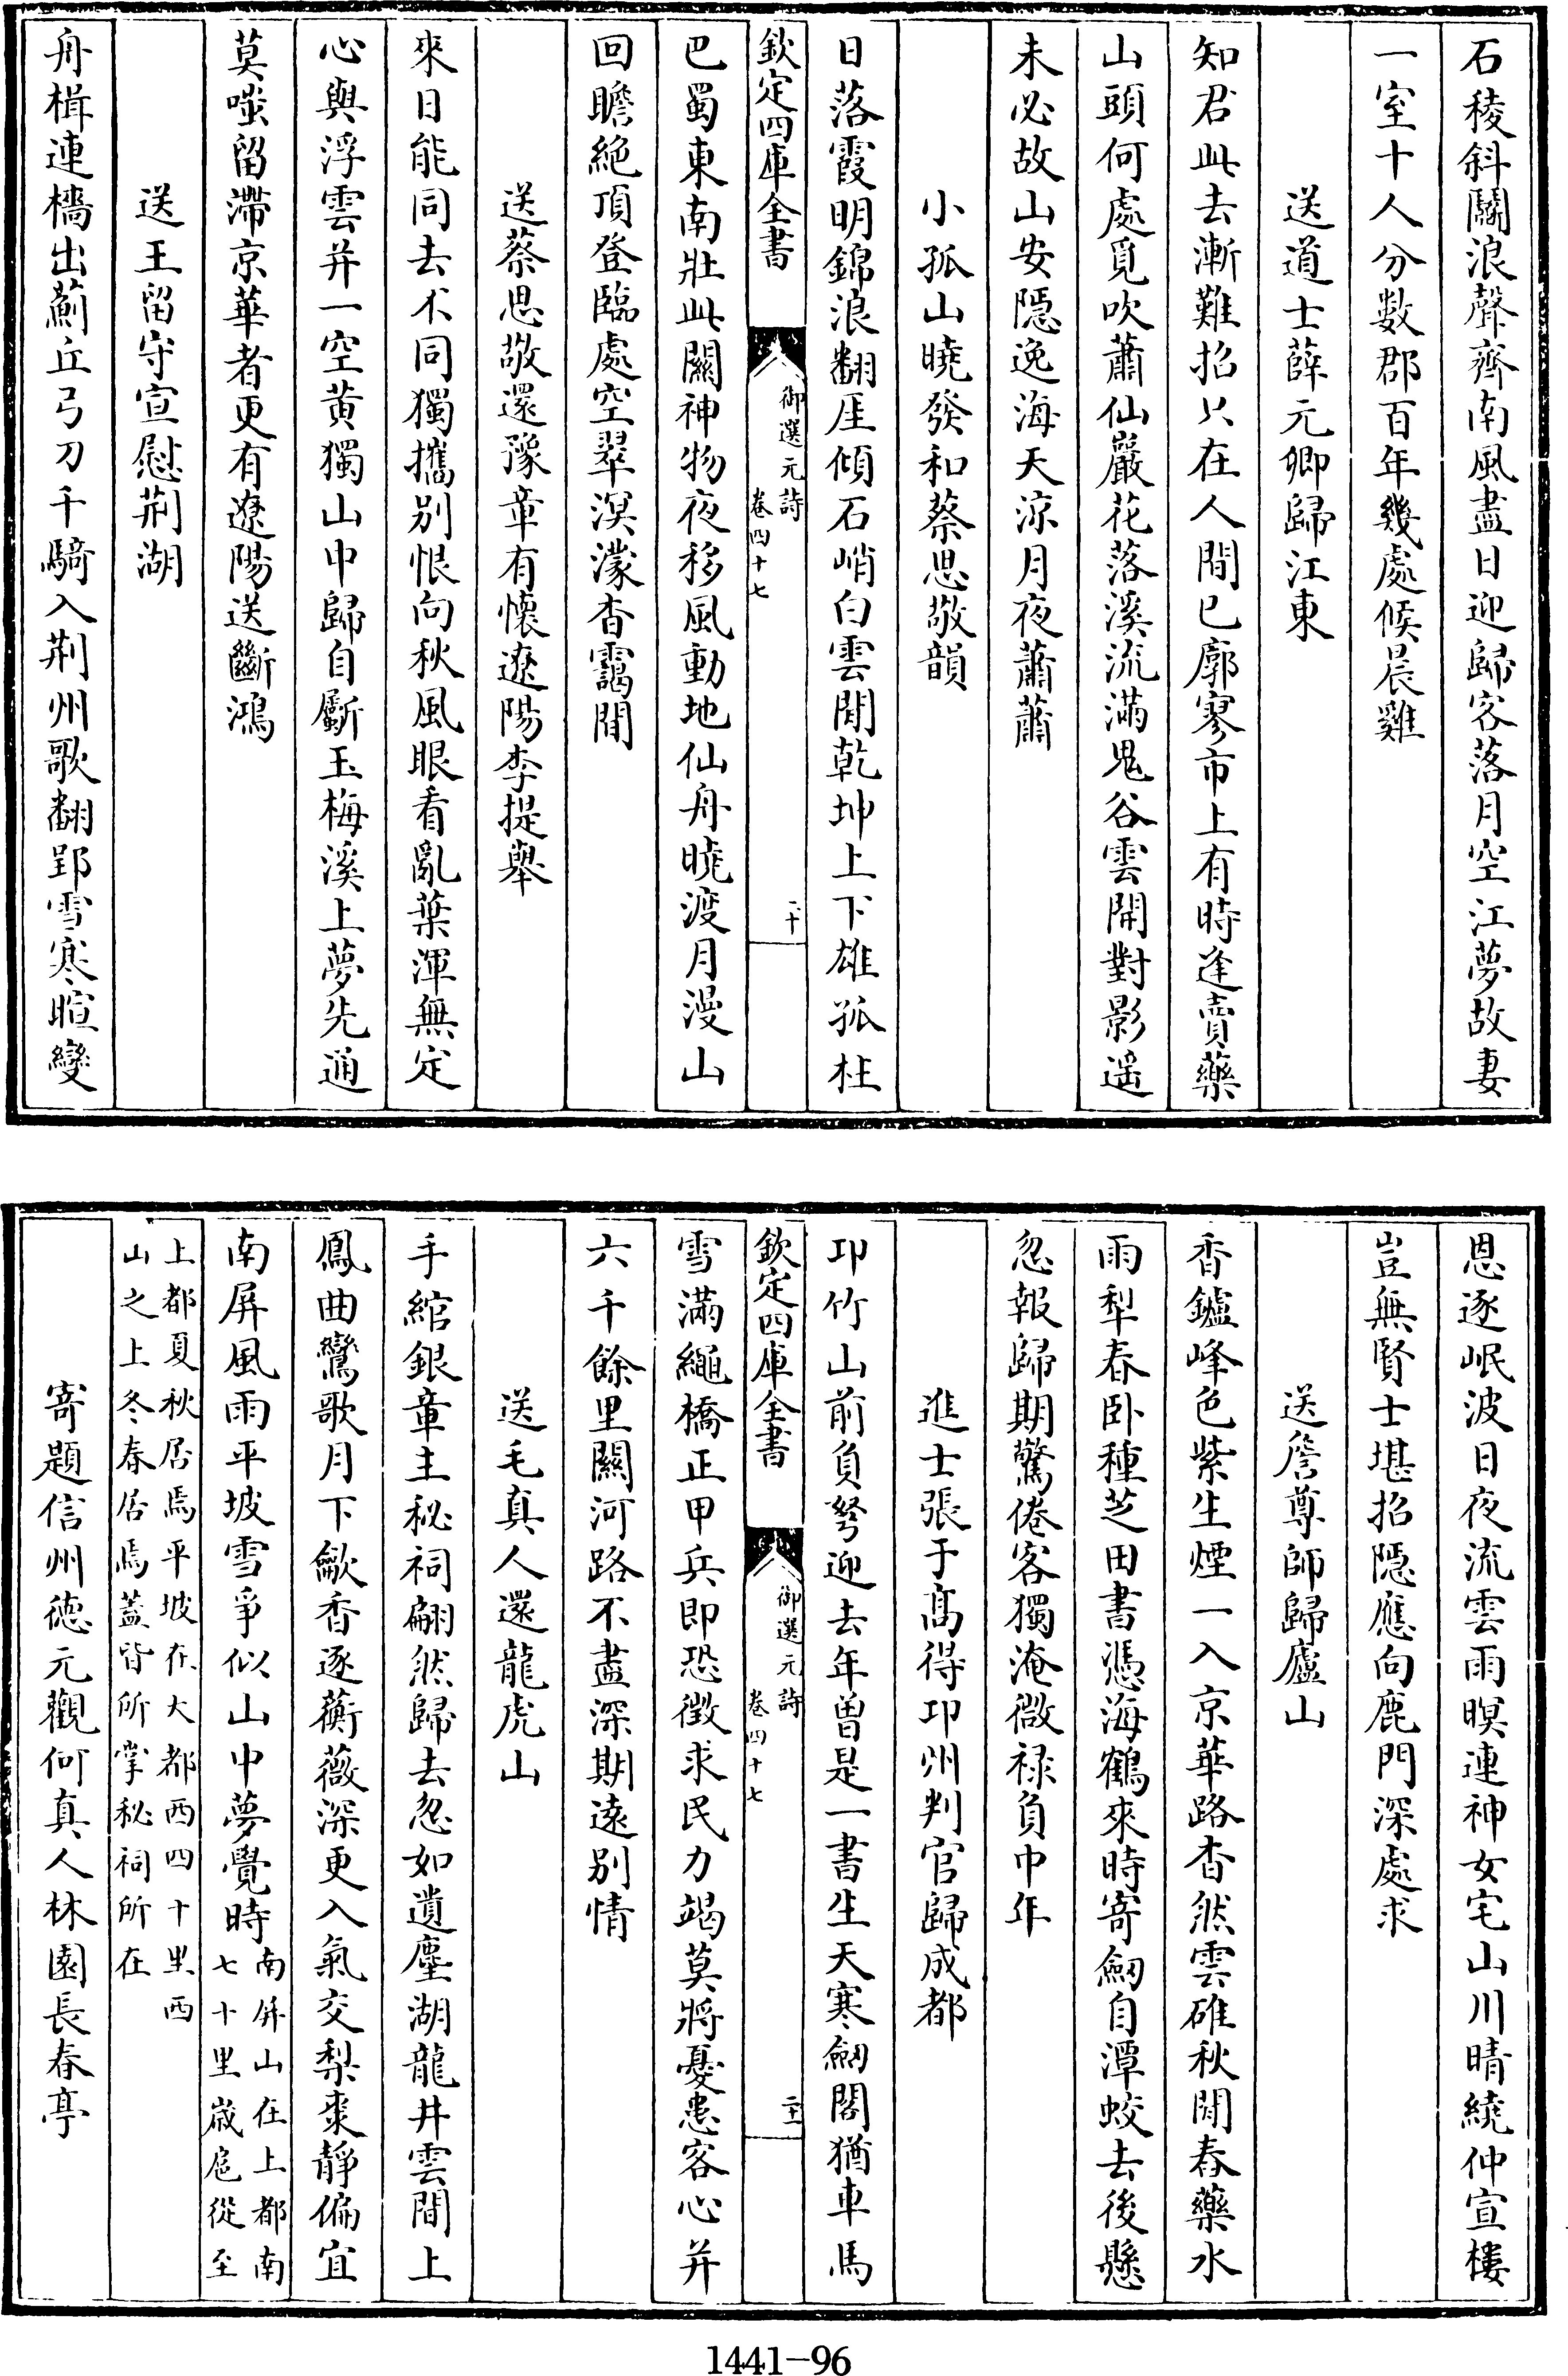 石稜斜鬭浪聲齊南風盡日迎歸客落月空江夢故妻
一室十人分數郡百年幾處候晨雞
送道士薛元卿歸江東
知君此去漸難招只在人間已廓寥市上有時逢賣藥
山頭何處覓吹蕭仙巖花落溪流滿鬼谷雲開對影遥
未必故山安隠逸海天涼月夜蕭蕭
小孤山曉發和蔡思敬韻
日落霞明錦浪翻厓傾石峭白雲閒乾坤上下雄孤柱
欽定四庫全書
御選元詩
卷四十七
二十
巴蜀東南壯此關神物夜移風動地仙舟曉渡月漫山
回瞻絶頂登臨處空翠溟濛杳靄間
送蔡思敬還豫章有懷遼陽李提舉
來日能同去不同獨攜别恨向秋風眼看亂葉渾無定
心與浮雲并一空黄獨山中歸自斸玉梅溪上夢先通
莫嗤留滯京華者更有遼陽送斷鴻
送王留守宣慰荆湖
舟楫連檣出薊丘弓刀千騎入荆州歌翻郢雪寒暄變
恩逐岷波日夜流雲雨暝連神女宅山川晴繞仲宣樓
豈無賢士堪招隠應向鹿門深處求
送詹尊師歸廬山
香鑪峰色紫生煙一入京華路杳然雲碓秋閒舂藥水
雨犁春卧種芝田書憑海鶴來時寄劒自潭蛟去後懸
忽報歸期驚倦客獨淹微禄負中年
進士張于髙得卭州判官歸成都
卭竹山前負弩迎去年曽是一書生天寒劒閣猶車馬
欽定四庫全書
御選元詩
卷四十七
二十一
雪滿繩橋正甲兵即恐徵求民力竭莫將憂患客心并
六千餘里關河路不盡深期遠别情
送毛真人還龍虎山
手綰銀章主秘祠翩然歸去忽如遺塵湖龍井雲間上
鳳曲鸞歌月下歈香逐蘅薇深更入氣交梨棗靜偏宜
南屏風雨平坡雪爭似山中夢覺時南屏山在上都南
七十里歲扈從至
上都夏秋居焉平坡在大都西四十里西
山之上冬春居焉蓋皆所掌秘祠所在
寄題信州徳元觀何真人林園長春亭
1441-96